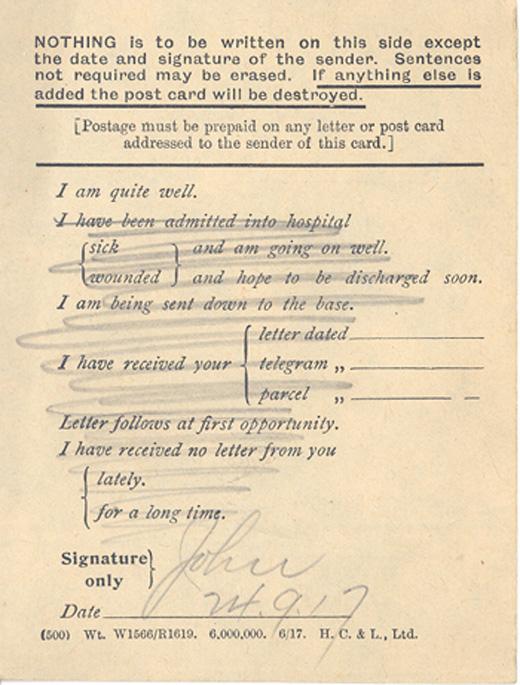 NOTHING is to be written on this side except
the date and signature of the sender. Sentences
not required may be erased. If anything else is
added the post card will be destroyed.
[Postage must be prepaid on any letter or post card
addressed to the sender of this card.]
I am quite well.
I have been admitted into hospital
sick and am going on well.
wounded and hope to be discharged soon.
I am being sent down to the base.
letter dated
I have received your telegram „
parcel „
Letter follows at first opportunity.
I have received no letter from you
lately.
for a long time.
Signature John
only
Date 24.9.17
(500) Wt. W1566/R1619. 6,000,000. 6/17. H. C. & L., Ltd.